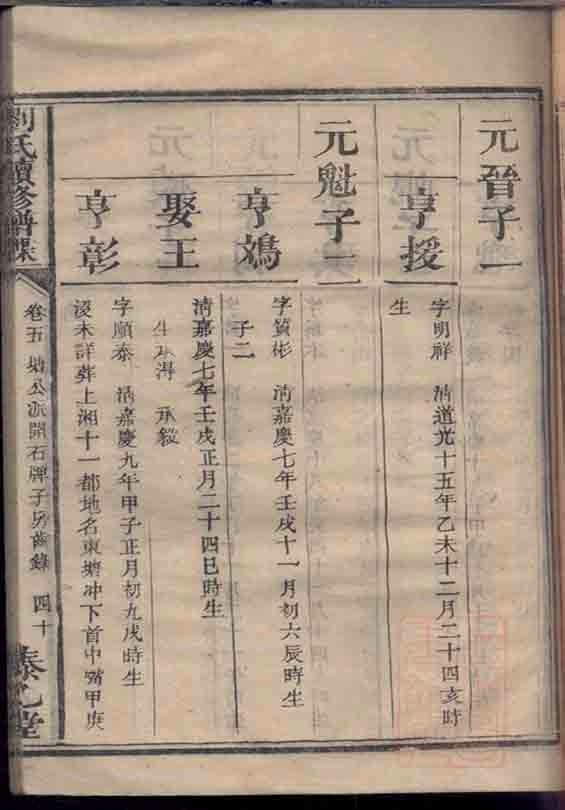 元晉子一
亨援
字明祥 清道光十五年乙未十二月二十四亥時
生
元魁子二
亨鵷
字質彬 清嘉慶七年壬戌十一月初六辰時生
子二
娶王
清嘉慶七年壬戌正月二十四巳時生
生承潯 承毅
亨彰
字順泰 清嘉慶九年甲子正月初九戌時生
沒未詳葬上湘十一都地名東塘沖下首中嘴甲庚
劉氏續修譜牒
卷五 塘公派開石牌子房齒錄 四十
堂